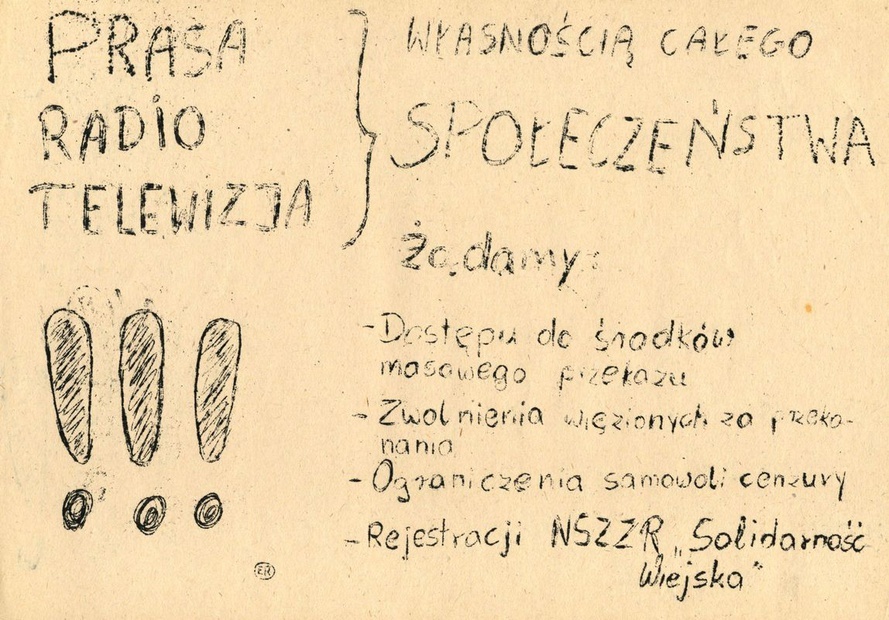 PRASA
RADIO
TELEWIZJA
WŁASNOŚCIĄ CAŁEGO
SPOŁECZEŃSTWA
Żądamy:
- Dostępu do środków
masowego przekazu
- Zwolnienia więzionych za przeko-
nania
- Ograniczenia samowoli cenzury
- Rejestracji NSZZR „Solidarność
Wiejska"
!!!
ER